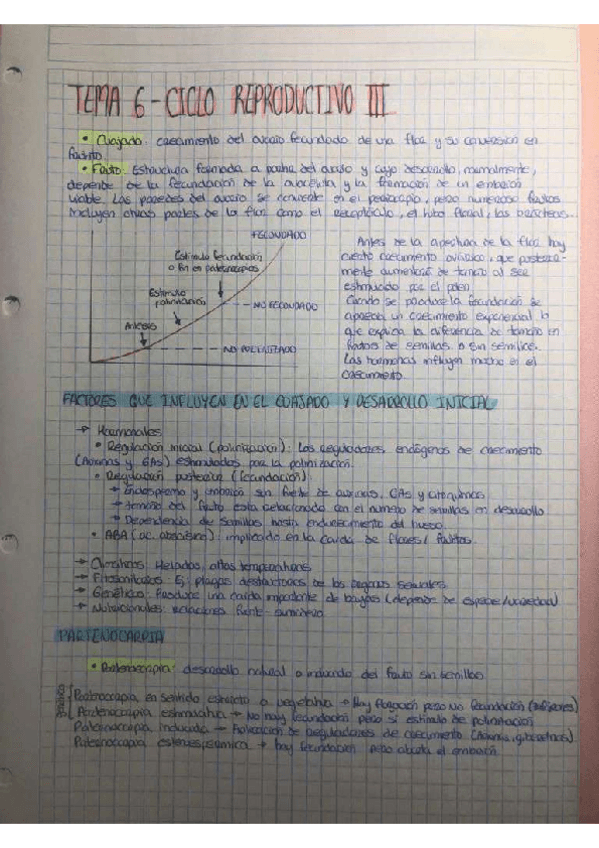 TEMA 6 - CICLO REPRODUCTIVO III
• Cuajado: crecimiento del ovario fecundado de una flor y su conversión en
frutito.
• Fruto: Estructura formada a partir del ovario y cuyo desarrollo, normalmente,
depende de la fecundación de la ovocélula y la formación de un embrión
viable. Las paredes del ovario se convierte en el pericarpio, pero numerosos frutos
incluyen otras partes de la flor como el receptáculo, el tubo floral, las brácteas...
FECUNDADO
Estímulo fecundación
o en partenocarpios
Estímulo
polinización
NO FECUNDADO
Antesis
NO POLINIZADO
Antes de la apertura de la flor hay
cierto crecimiento ovárico, que posterior-
mente aumentará de tamaño al ser
estimulado por el polen
Cuando se produce la fecundación se
aprecia un crecimiento exponencial lo
que explica la diferencia de tamaño en
frutos de semillas o sin semillas.
Las hormonas influyen mucho en el
crecimiento.
FACTORES QUE INFLUYEN EN EL CUAJADO Y DESARROLLO INICIAL
→ Hormonales
• Regulación inicial (polinización): Los reguladores endógenos de crecimiento
(Auxinas y GAs) estimulados por la polinización.
• Regulación posterior (fecundación)
→ Endospermo y embrión son fuente de auxinas, GAs y citoquininas
→ tamaño del fruto está relacionado con el número de semillas en desarrollo
→ Dependencia de semillas hasta endurecimiento del hueso.
• ABA (ac. abscísico): implicado en la caída de flores/ frutitos.
→ Climáticos: Heladas, altas temperaturas
→ Fitosanitarios: Ej. plagas destructoras de los órganos sexuales.
→ Genético: Produce una caída importante de (depende de especie/variedad)
→ Nutricionales: relaciones fuente-sumidero
PARTENOCARPIA
• Partenocarpia: desarrollo natural o inducido del fruto sin semillas
Partenocarpia en sentido estricto o vegetativa → Hay floración pero NO fecundación
Partenocarpia estimulativa → No hay fecundación pero sí estímulo de polinización
Partenocarpia inducida → Aplicación de reguladores de crecimiento (Auxinas, giberelinas)
Partenocarpia estenoespérmica → hay fecundación pero aborta el embrión